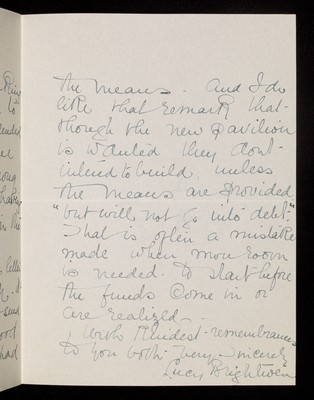 the means. And I do
like that remark that
though the new pavilion
is wanted they don't
intend to build, unless
the means are provided
"but will not go into debt".
That is often a mistake
made when more room
is needed. To start before
the funds come in or
are realized.
With kindest remembrances
to you both. Very sincerely
Lucy